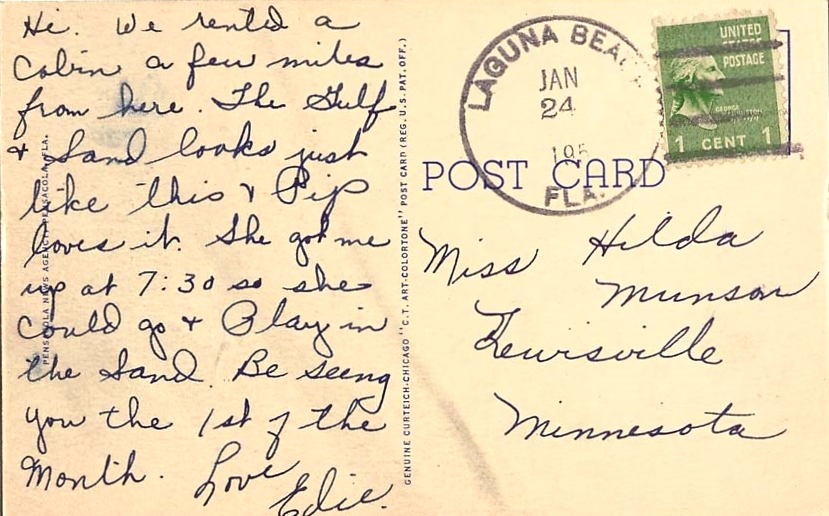 Hi. We rented a
Cabin a few miles
from here. The Gulf
& Sand looks just
like this & Pip
loves it. She got me
up at 7:30 so she
could go & Play in
the Sand. Be seeing
you the 1st of the
Month. Love
Edie.
PENSACOLA NEWS AGENCY, PENSACOLA, FLA.
GENUINE CURTEICH-CHICAGO "C.T. ART-COLORTONE" POST CARD (REG. U.S. PAT. OFF.)
LAGUNA BEACH
JAN
24
195
FLA.
UNITED
STATES
POSTAGE
GEORGE
WASHINGTON
1 CENT 1
POST CARD
Miss Hilda
Munson
Lewisville
Minnesota